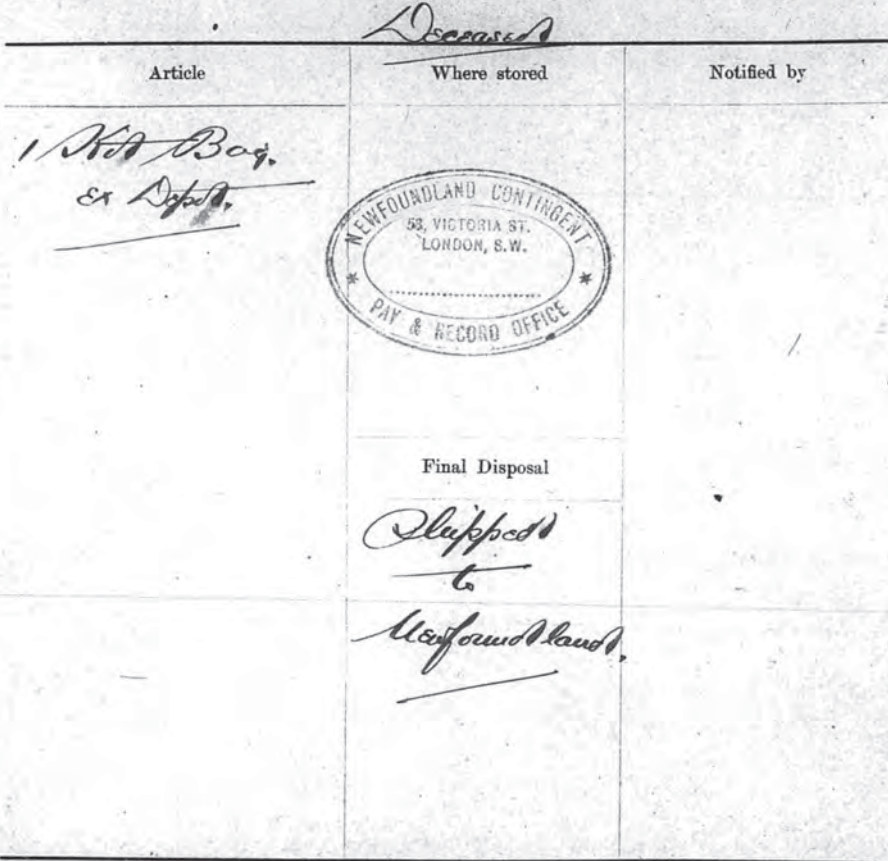 Deceased
Article
Where stored
Notified by
1 Kit Bag.
ex Depot.
NEWFOUNDLAND CONTINGENT
58, VICTORIA ST.
LONDON, S.W.
PAY & RECORD OFFICE
Final Disposal
Shipped
to
Newfoundland.